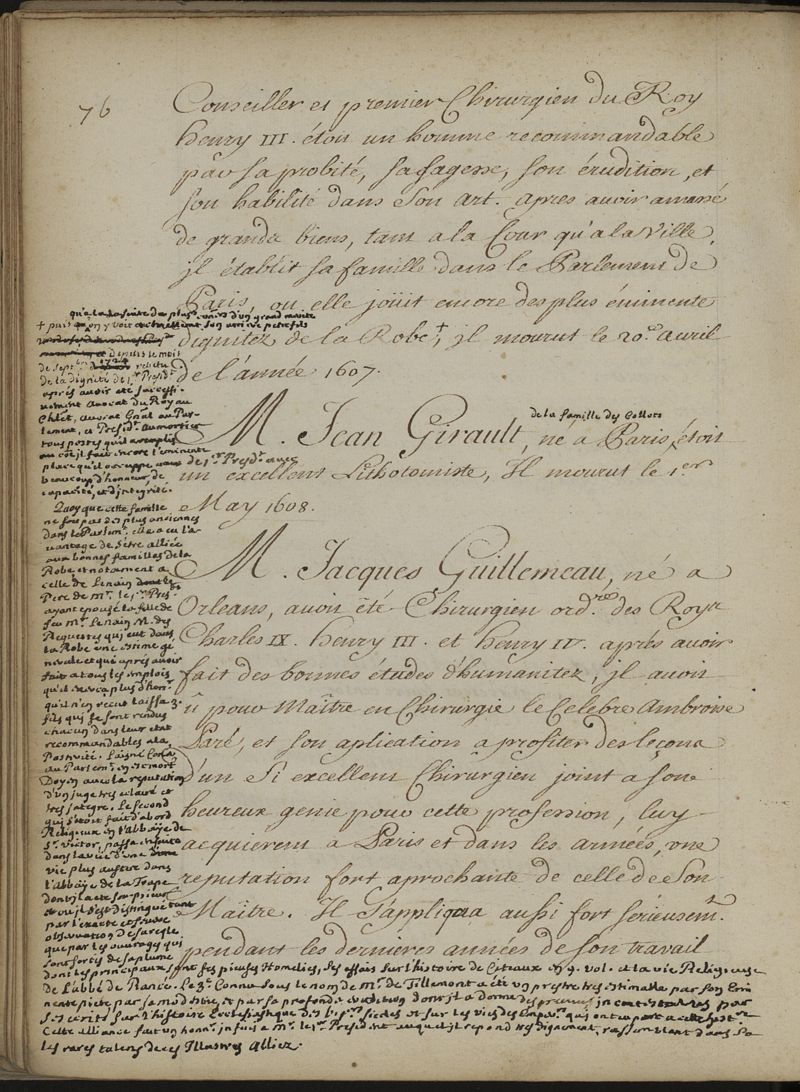 76
Conseiller et premier Chirurgien du Roy
henry III. étoit un homme recommandable
par sa probité, sa sagesse, son érudition, et
son habilité dans son art. apres avoir amassé
de grands biens, tant a la Cour qu'a la Ville,
il établit sa famille dans le Parlement de
Paris, ou elle joüit encore des plus éminente
dignitez de la Robe †, il mourut le 20.e avril
de l'année 1607.
M. Jean Girault, né a Paris, étoit
de la famille des Collots
un excellent Lithotomiste, Il mourut le 1.er
May 1608.
M. Jacques Guillemeau, né a
Orleans, avoit été Chirurgien ord.res des Roys
Charles IX. henry III. et henry IV. aprés avoir
fait des bonnes études d'humanitez, il avoit
û pour Maître en Chirurgie le Celebre Ambroise
Paré, et son aplication a profiter des leçons
d'un si excellent Chirurgien joint a son
heureux genie pour cette profession, luy
acquierent a Paris et dans les armées, une
reputation fort aprochante de celle de son
Maître. Il s'appliqua aussi fort serieusem.t
pendant les dernieres années de son travail
† puis qu'on y voit actuellement son arriere petit fils
depuis le mois
de sept.bre 1724 revetu
de la dignité de 1.er Presid.t
apres avoir été successi-
vement Avocat du Roy au
Chlêt, avocat Gñal au Par-
lement, et Presid.t au mortier
tous postes qu'il a remplis
place qu'il occuppe de 1.er Presid.t avec
beaucoup d'honneur, de
capacité, et d'integrité.
Quoy que cette famille
ne soit pas des plus anciennes
dans le Parlem.t elle a eu l'a-
vantage de s'etre alliée
aux bonnes familles de la
Robe et notament a
celle de Lenain dont le
Pere de M.r le 1.er Pres.t
ayant epousé la fille de
feu M.r Lenain M. des
Requestes qui eut dans
la Robe une estime ge
nerale et qui apres avoir
fait a tous les emplois
qu'il n'en receut laissa 3.
fils qui se sont rendus
chacun dans leur etat
recommandables a la
Posterité. L'aisné Con.er
au Parlem.t est mort
Doyen avec la reputation
d'un juge tres eclairé et
tres integre. Le second
qui s'etoit fait d'abord
Religieux en l'abbaÿe de
S.t Victor, passa ensuite
dans la vie d'une
vie plus austere dans
l'abbaÿe de la Trape
dont il a eté sou prieur
et ou il s'est distingué tant
par l'exacte et severe
observation de sa regle
que par les ouvrages qui
sont sortis de sa plume
dont les principaux sont ses pieuses Homelies, ses essais sur l'histoire de Citeaux en 9. vol. et la vie Religieuse
de l'abbé de Rancé. Le 3.e Connu sous le nom de M.r de Tillemont a été un prestre tres estimable par son Emi
nente pieté par sa modestie, et par sa profonde erudition dont il a donné des preuves incontestables par
ses ecrits sur l'histoire Ecclesiastique des 6 p.rs siecles et sur les vies des Emper.rs qui ont raport a cette hist.re
Cette alliance fait un honn.r infini a M.r le 1.er President auquel il repond tres dignement, rassemblant dans sa
les rares talens de ces Illustres Alliez.